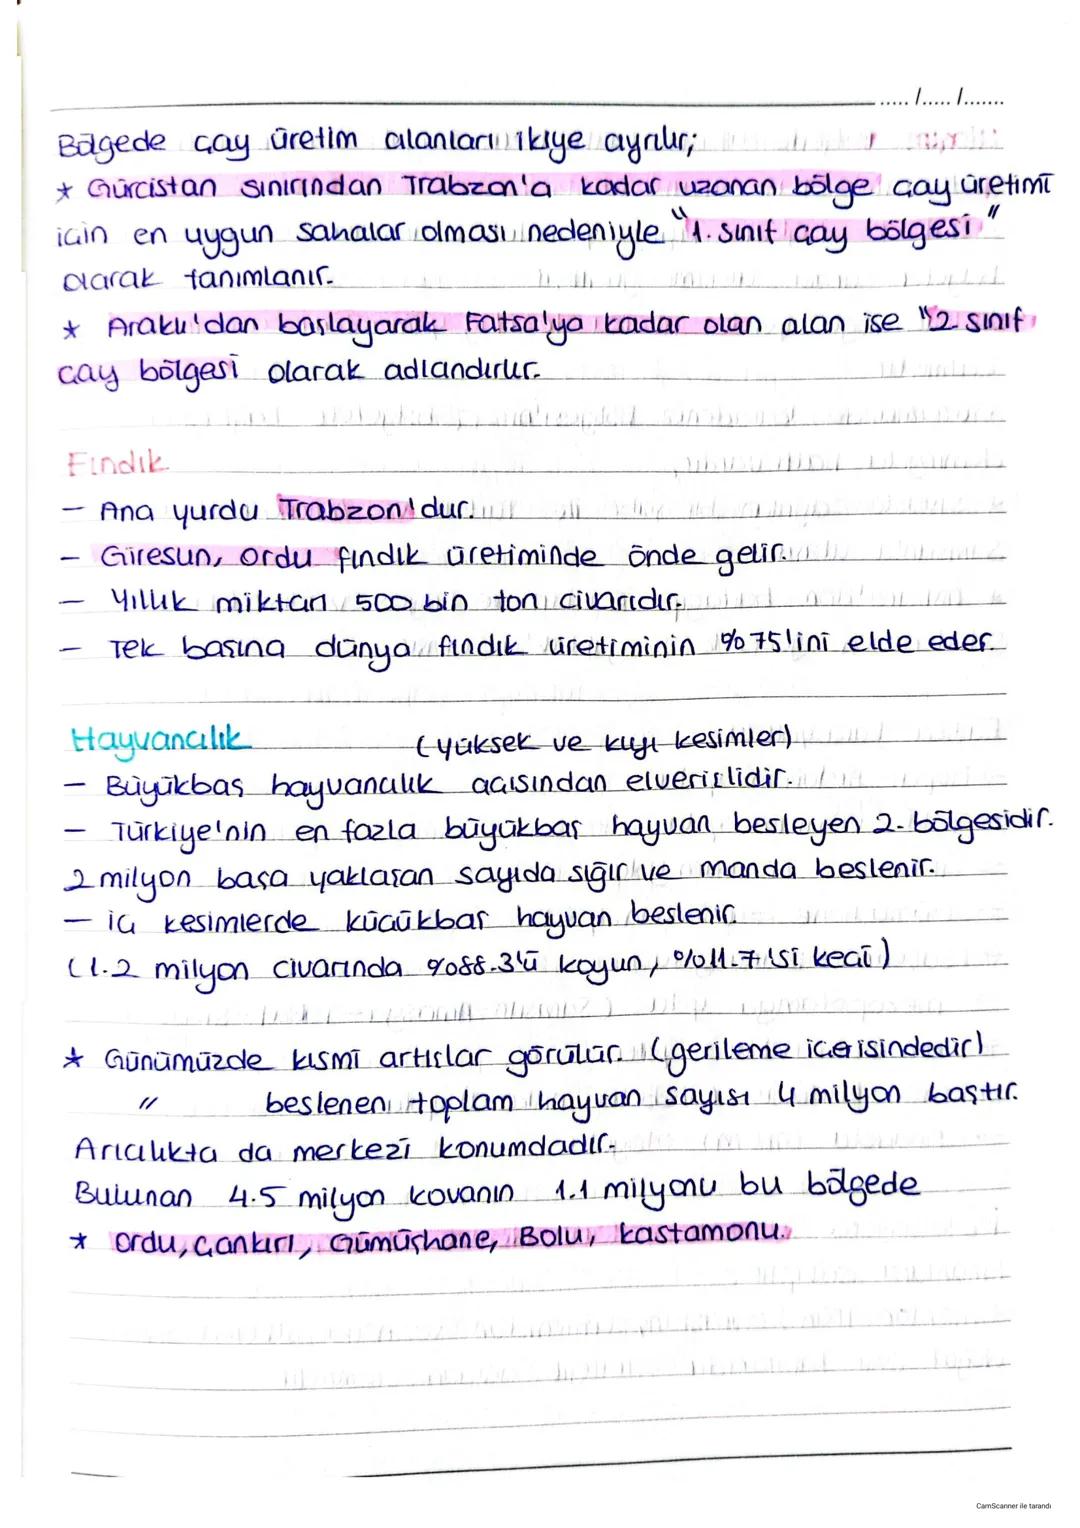 ..... /..... /.......
Bölgede çay üretim alanları ikiye ayrılır;
* Gürcistan sınırından Trabzon'a kadar uzanan bölge çay üretimi
için en uygun sahalar olması nedeniyle "1. sınıf çay bölgesi"
olarak tanımlanır.
* Araklı'dan başlayarak Fatsa'ya kadar olan alan ise "2. sınıf
çay bölgesi olarak adlandırılır.
Fındık
- Ana yurdu Trabzon'dur.
- Giresun, Ordu fındık üretiminde önde gelir.
- Yıllık miktarı 500 bin ton civarıdır.
- Tek başına dünya fındık üretiminin %75'ini elde eder.
Hayvancılık (yüksek ve kıyı kesimler)
- Büyükbaş hayvancılık açısından elverişlidir.
- Türkiye'nin en fazla büyükbaş hayvan besleyen 2. bölgesidir.
2 milyon başa yaklaşan sayıda sığır ve manda beslenir.
- iç kesimlerde küçükbaş hayvan beslenir.
(1.2 milyon civarında %88.3'ü koyun, %11.7'si keçi)
* Günümüzde kısmi artışlar görülür. (gerileme içerisindedir)
" beslenen toplam hayvan sayısı 4 milyon baştır.
Arıcılıkta da merkezi konumdadır.
Bulunan 4.5 milyon kovanın 1.1 milyonu bu bölgede
* Ordu, Çankırı, Gümüşhane, Bolu, Kastamonu.
CamScanner ile tarandı